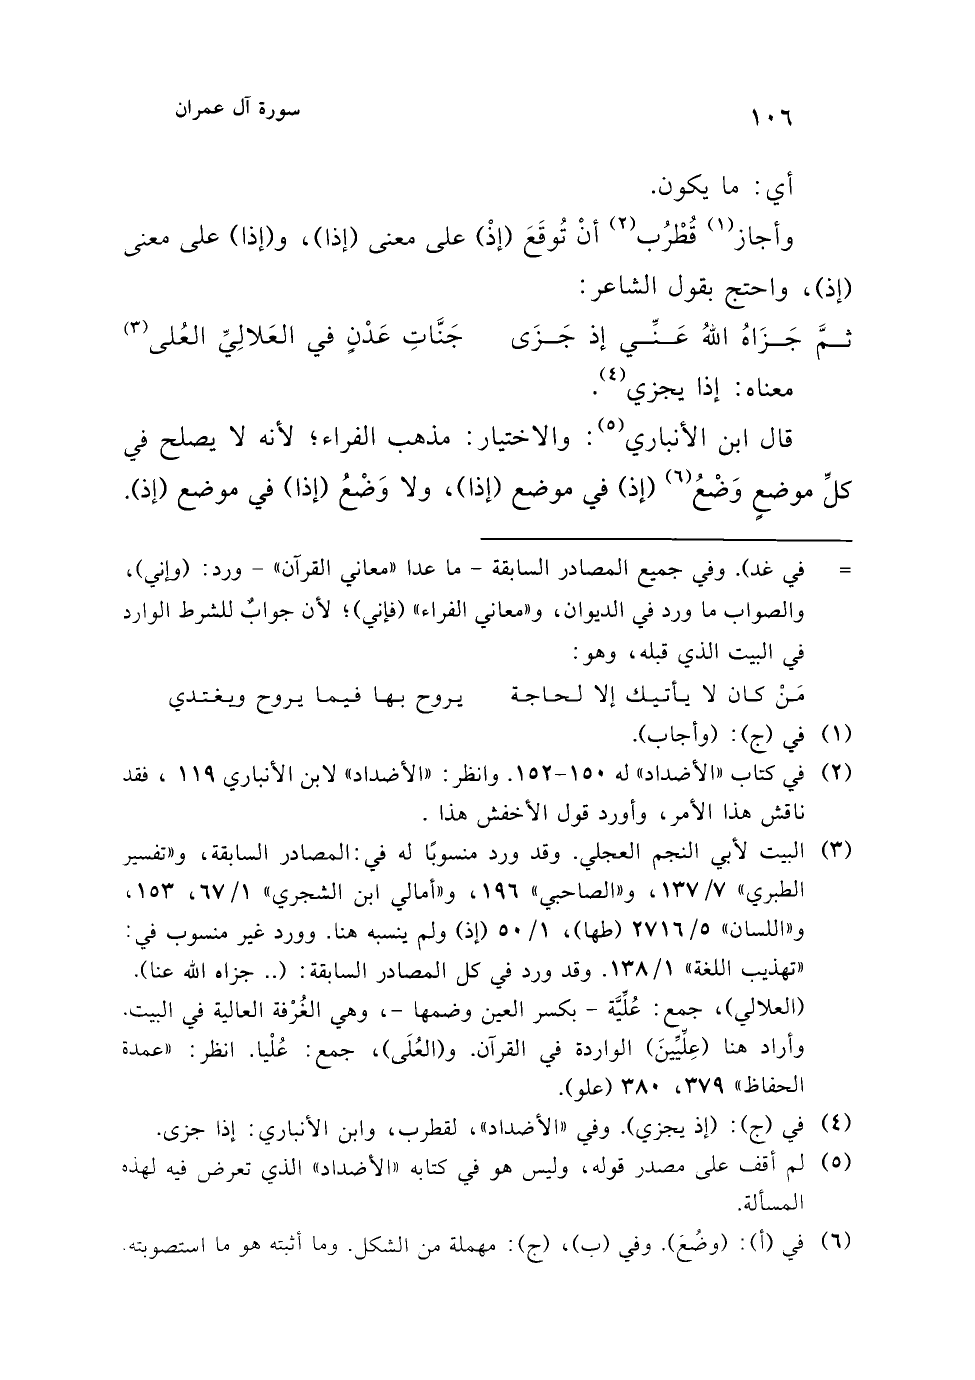 ١٠٦ سورة آل عمران
أي: ما يكون.
وأجاز(١) قُطْرُب(٢) أنْ تُوقَعَ (إذْ) على معنى (إذا)، و(إذا) على معنى
(إذ)، واحتج بقول الشاعر:
ثمَّ جَزَاهُ اللهُ عَنِّي إذ جَزَى جَنَّاتِ عَدْنٍ في العَلالِيِّ العُلى(٣)
معناه: إذا يجزي(٤).
قال ابن الأنباري(٥): والاختيار: مذهب الفراء؛ لأنه لا يصلح في
كلِّ موضعٍ وَضْعُ(٦) (إذ) في موضع (إذا)، ولا وَضْعُ (إذا) في موضع (إذ).
= في غد). وفي جميع المصادر السابقة - ما عدا «معاني القرآن» - ورد: (وإني)،
والصواب ما ورد في الديوان، و«معاني الفراء» (فإني)؛ لأن جوابٌ للشرط الوارد
في البيت الذي قبله، وهو:
مَنْ كان لا يأتيك إلا لحاجة يروح بها فيما يروح ويغتدي
(١) في (ج): (وأجاب).
(٢) في كتاب «الأضداد» له ١٥٠-١٥٢. وانظر: «الأضداد» لابن الأنباري ١١٩ ، فقد
ناقش هذا الأمر، وأورد قول الأخفش هذا .
(٣) البيت لأبي النجم العجلي. وقد ورد منسوبًا له في: المصادر السابقة، و«تفسير
الطبري» ٧/ ١٣٧، و«الصاحبي» ١٩٦، و«أمالي ابن الشجري» ١/ ٦٧، ١٥٣،
و«اللسان» ٥/ ٢٧١٦ (طها)، ١/ ٥٠ (إذ) ولم ينسبه هنا. وورد غير منسوب في:
«تهذيب اللغة» ١/ ١٣٨. وقد ورد في كل المصادر السابقة: (.. جزاه الله عنا).
(العلالي)، جمع: عُلِّيَّة - بكسر العين وضمها -، وهي الغُرْفة العالية في البيت.
وأراد هنا (عِلِّيِّينَ) الواردة في القرآن. و(العُلَى)، جمع: عُلْيا. انظر: «عمدة
الحفاظ» ٣٧٩، ٣٨٠ (علو).
(٤) في (ج): (إذ يجزي). وفي «الأضداد»، لقطرب، وابن الأنباري: إذا جزى.
(٥) لم أقف على مصدر قوله، وليس هو في كتابه «الأضداد» الذي تعرض فيه لهذه
المسألة.
(٦) في (أ): (وضُعَ). وفي (ب)، (ج): مهملة من الشكل. وما أثبته هو ما استصوبته.